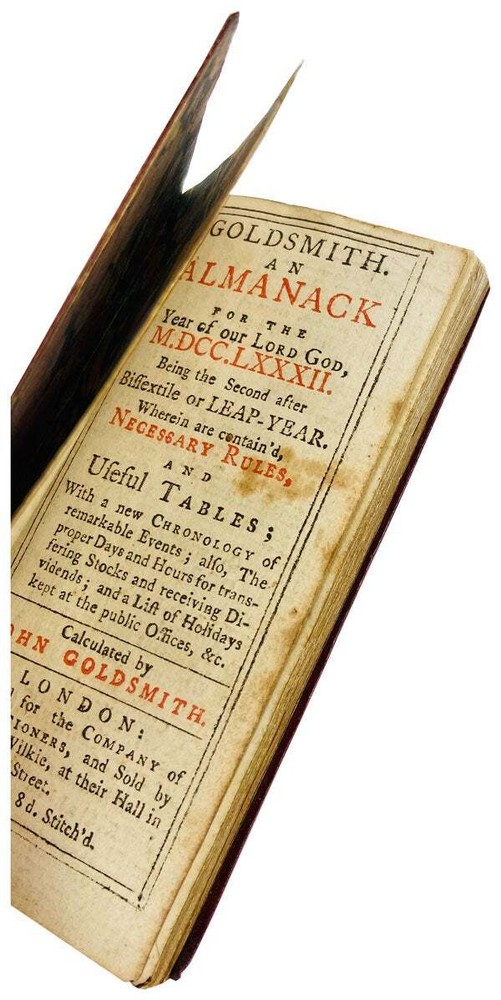 GOLDSMITH.
AN
ALMANACK
FOR THE
Year of our LORD GOD,
M.DCC.LXXXII.
Being the Second after
Biſſextile or LEAP-YEAR.
Wherein are contain'd,
NECESSARY RULES,
AND
Uſeful TABLES;
With a new CHRONOLOGY of
remarkable Events; alſo, The
proper Days and Hours for tranſ-
fering Stocks and receiving Di-
vidends; and a Liſt of Holidays
kept at the public Offices, &c.
Calculated by
OHN GOLDSMITH.
LONDON:
for the COMPANY of
TIONERS, and Sold by
Wilkie, at their Hall in
Street.
8d. Stitch'd.